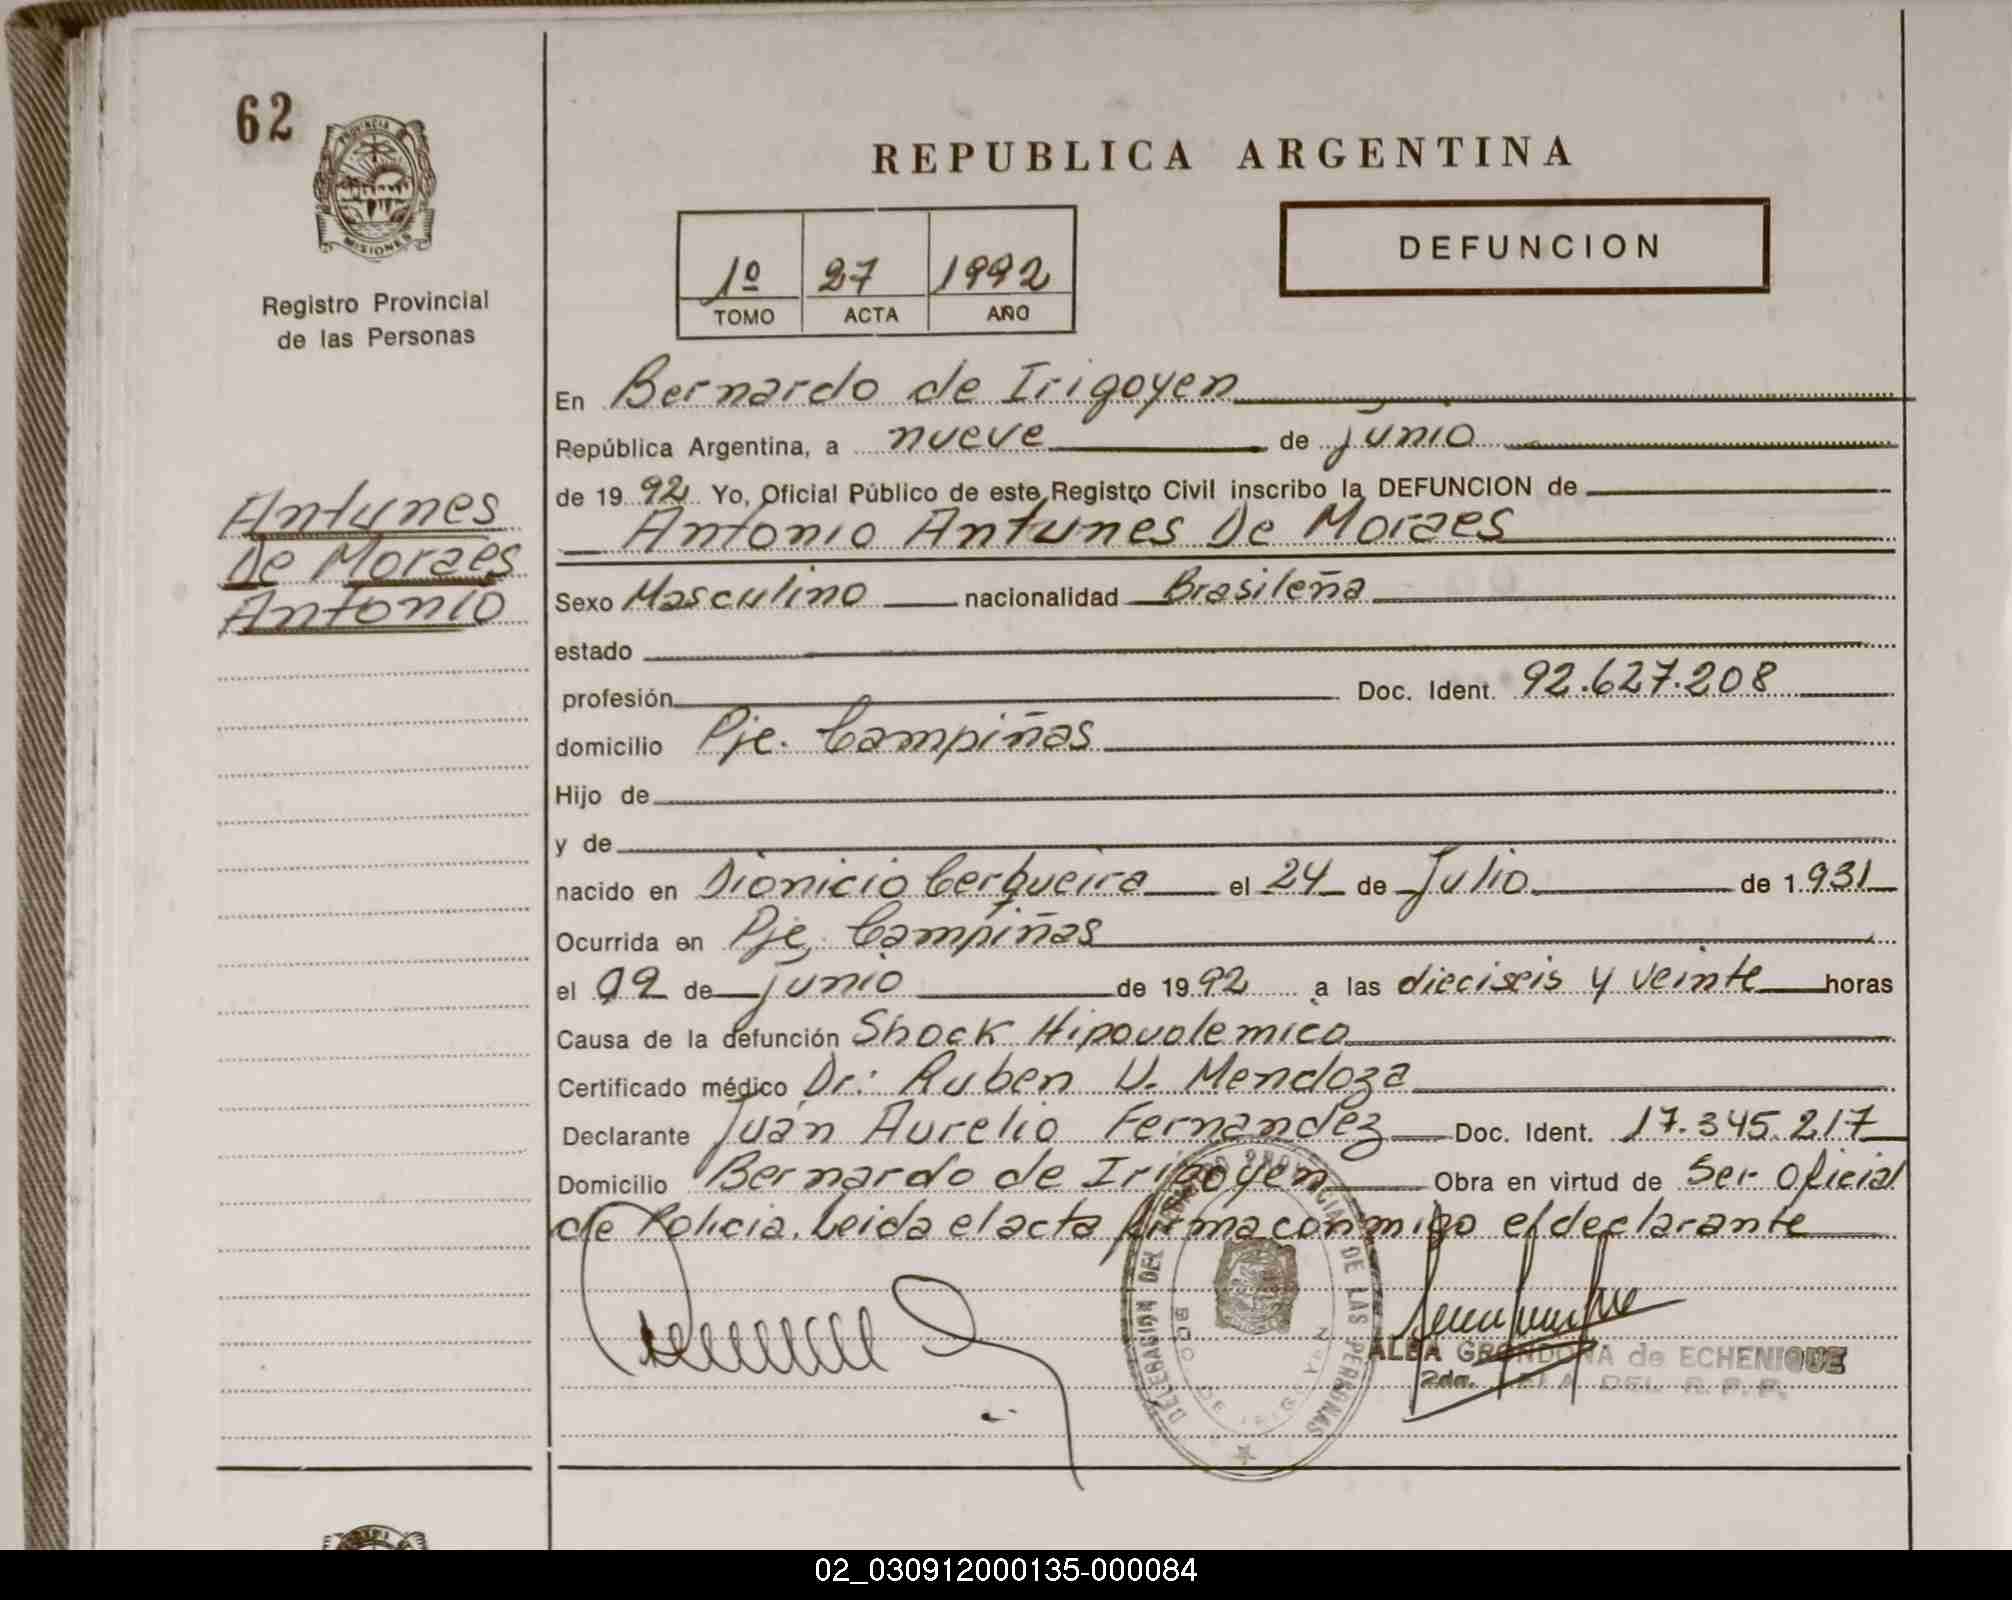 62
PROVINCIA
MISIONES
Registro Provincial
de las Personas
Antunes
De Moraes
Antonio
REPUBLICA ARGENTINA
1º 27 1992
TOMO ACTA AÑO
DEFUNCION
En Bernardo de Irigoyen
República Argentina, a nueve de junio
de 19 92 Yo, Oficial Público de este Registro Civil inscribo la DEFUNCION de
Antonio Antunes De Moraes
Sexo Masculino nacionalidad Brasileña
estado
profesión Doc. Ident. 92.627.208
domicilio Pje. Campiñas
Hijo de
y de
nacido en Dionicio Cerqueira el 24 de Julio de 1.931
Ocurrida en Pje, Campiñas
el 09 de junio de 19 92 a las dieciseis y veinte horas
Causa de la defunción Shock Hipovolemico
Certificado médico Dr: Ruben U. Mendoza
Declarante Juan Aurelio Fernandez Doc. Ident. 17.345.217
Domicilio Bernardo de Irigoyen Obra en virtud de Ser Oficial
de Policia. Leida el acta firma conmigo el declarante
DELEGACION DEL PROVINCIAL DE LAS PERSONAS
BDO DE IRIGOYEN
ALBA GRONDONA de ECHENIQUE
2da. DEL R. P. P.
02_030912000135-000084